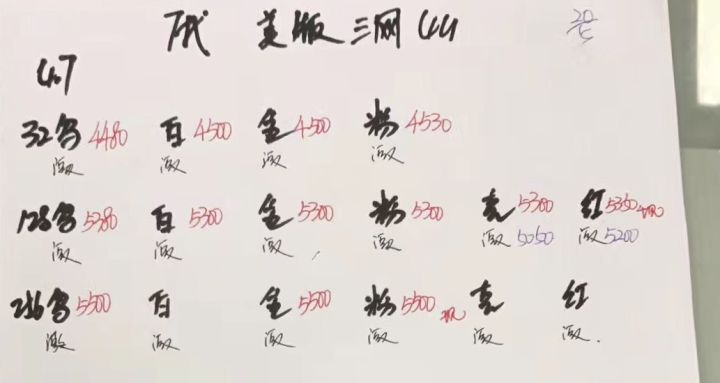 7代 美版三网 4G
4.7
32黑4480 白4500 金4500 粉4530
激 激 激 激
128黑5380 白5300 金5300 粉5300 亮5300 红5350
激 激 激 激 激5050 激5200
256黑5500 白 金5500 粉5500 亮 红
激 激 激 激 激 激.